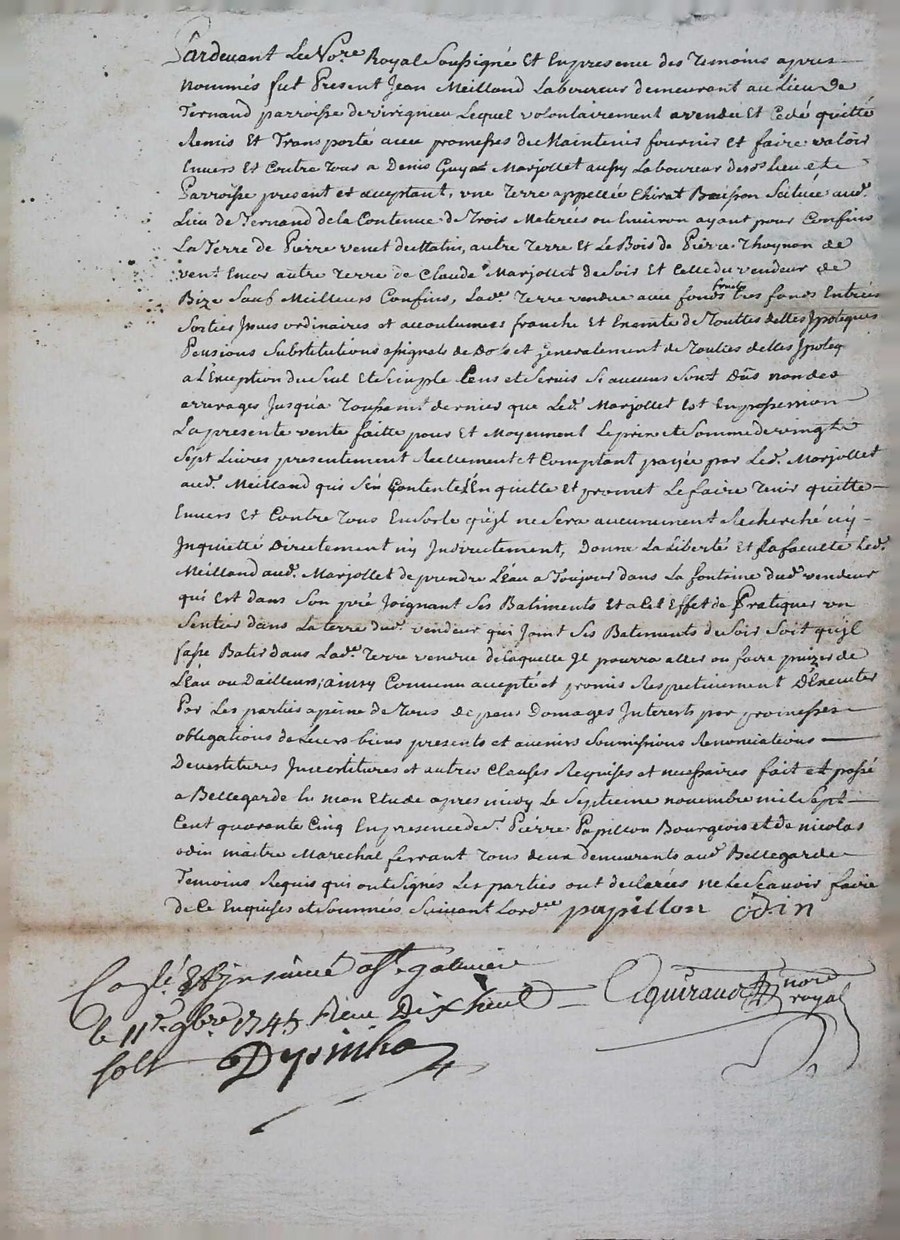 Pardevant Le No.re Royal Soussigné Et En presence des Temoins apres
nommés fut Present Jean Meilland Laboureur demeurant au Lieu de
Ternand parroisse de virignieu Lequel volontairement a vendu Et Cedé quitté
Remis Et Transporté avec promesses de Maintenir fournir et faire valoir
Envers Et Contre Tous a Denis Guyat Marjollet aussy Laboureur desd.s lieu et
Parroisse present et acceptant, une Terre appellée Chirat Buisson Scituée aud.
Lieu de Ternand de la Contenue de Trois Meterées ou Environ ayant pour Confins
La Terre de Pierre venet de Matin, autre Terre Et Le Bois de Pierre Thoynon de
vent Encor autre Terre de Claude Marjollet de Soir Et Celle du vendeur de
Bize Sauf Meilleurs Confins, Lad.e Terre vendue avec fonds tres fonds Entrées
fruits
Sorties Jssues ordinaires et accoutumees franche Et Exemte de Touttes dettes Jpoteques
Pensions Substitutions assignats de Dots et Generalement de Touttes dettes Jpoteq
a L'Exception du Seul Et Simple Cens et Servis Si aucuns Sont Dûs non des
arrerages Jusqu'a Toussaint dernier que Led. Marjollet Est En possession
La presente vente faitte pour Et Moyennent Le prix et Somme de vingt
Sept Livres presentement Reellement et Comptant payée par Led. Marjollet
aud. Meilland qui S'En Contente L'En quitte Et promet Le faire Tenir quitte
Envers Et Contre Tous En Sorte qu'jl ne Sera aucunement Recherché ny
Jnquietté Directement ny Jndirectement, Donna La Liberté Et La faculté Led.
Meilland aud. Marjollet de prendre L'Eau a Toujour dans La fontaine dud. vendeur
qui Est dans Son pré Joignant Ses Batiments Et a Cet Effet de Pratiquer un
Sentier dans La terre dud. vendeur qui Joint Ses Batements du Soir Soit qu'jl
fasse Batir dans Lad.e Terre vendue de Laquelle Jl pourra aller ou faire puizer de
L'Eau ou D'ailleurs, ainsy Convenu accepté et promis Respectivement D'Executer
Par Les parties a peine de Tous Depens Domages Interets par promesses
obligations de Leurs biens presents et avenirs Soumissions Renonciations
Devestitures Jnvestitures et autres Clauses Requises et necessaires fait et passé
a Bellegarde En mon Etude apres midy Le Septieme novembre mil Sept
Cent quarante Cinq En presence de S. Pierre Papillon Bourgeois et de nicolas
odin maitre Marechal ferrant Tous deux demeurants aud. Bellegarde
Temoins Requis qui ont Signés Les parties ont declarées ne Le Scavoir faire
De Ce Enquises et Sommées Suivant Lord.ce papillon odin
le 11.e 9bre 1745 Dix huit
nore
royal